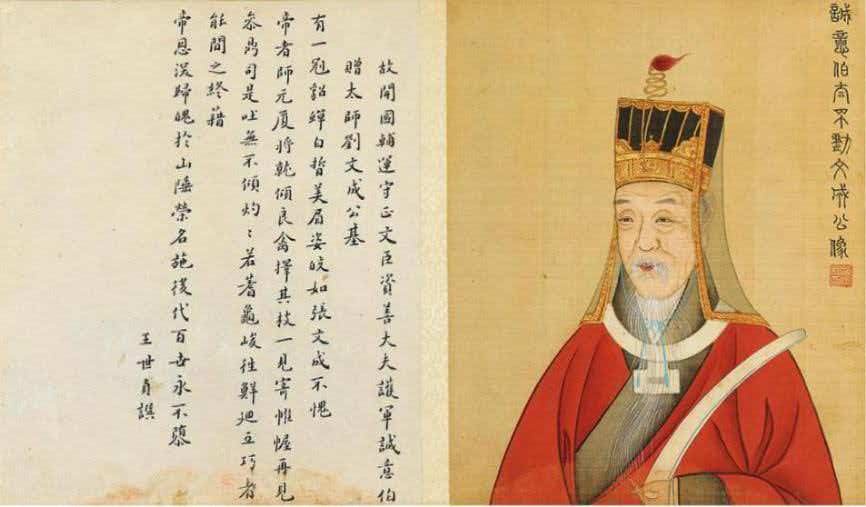 誠意伯太師劉文成公像
故開國輔運守正文臣資善大夫護軍誠意伯
贈太師劉文成公基
有一冠貂蟬白皙美眉姿皎如張文成不愧
帝者師元廈將乾傾良禽擇其枝一見寄帷幄再見
參鼎司是吐無不傾灼〻若蓍龜峻往鮮廻互巧者
能間之終藉
帝恩深歸魄於山陲榮名施後代百世永不隳
王世貞譔